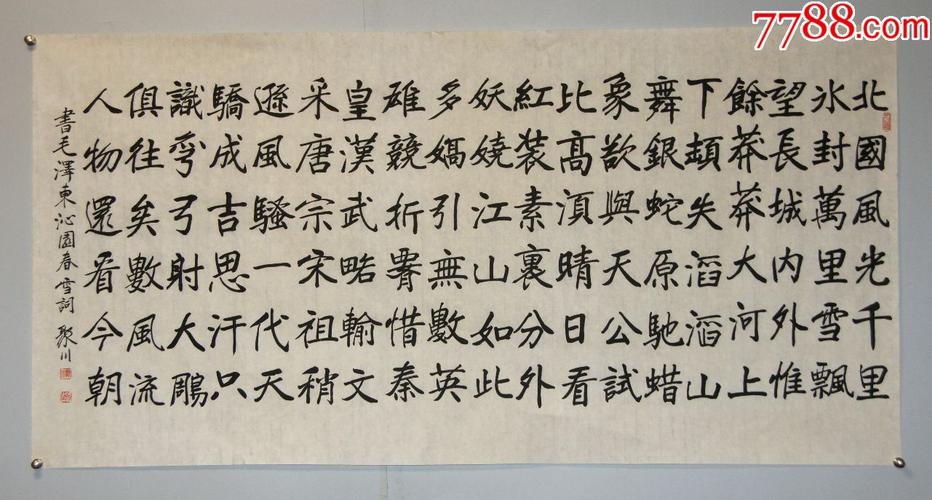 7788.com
北國風光千里
氷封萬里雪飄
望長城内外惟
餘莽莽大河上
下頓失滔滔山
舞銀蛇原馳蜡
象欲與天公試
比髙湏晴日看
紅裝素裹分外
妖嬈江山如此
多嬌引無數英
雄競折腰惜秦
皇漢武略輸文
采唐宗宋祖稍
遜風騷一代天
驕成吉思汗只
識彎弓射大鵰
俱往矣數風流
人物還看今朝
書毛澤東沁園春雪詞 聚川